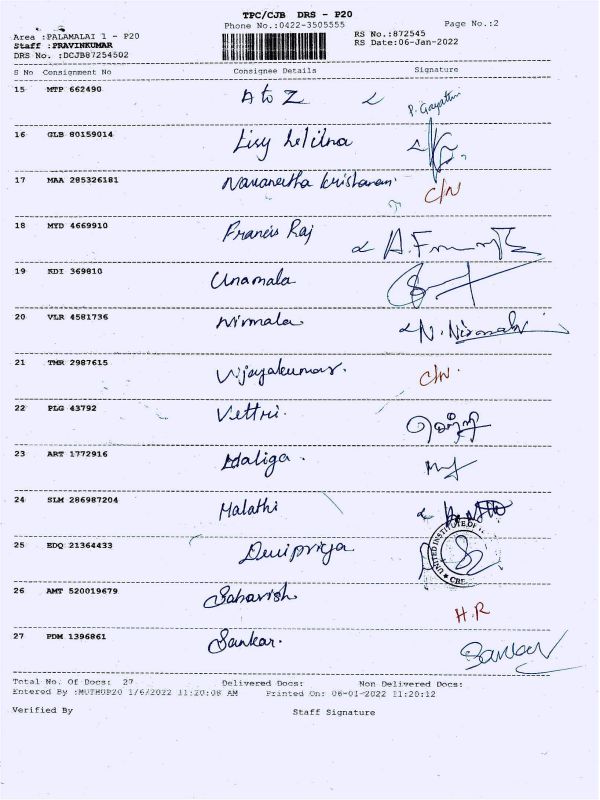 TPC/CJB DRS - P20
Phone No.:0422-3505555
Page No.:2
Area :PALAMALAI 1 - P20
Staff :PRAVINKUMAR
DRS No. :DCJB87254502
RS No.:872545
RS Date:06-Jan-2022
S No Consignment No Consignee Details Signature
15 MTP 662490 A to Z P. Gayathri
16 GLB 80159014
17 MAA 285326181 C/N
18 MYD 4669910 Francis Raj
19 KDI 369810 Unamala
20 VLR 4581736 Nirmala N. Nirmala
21 TMR 2987615 Vijayakumar. C/N.
22 PLG 43792 Vettri.
23 ART 1772916 Maliga.
24 SLM 286987204 Malathi
25 EDQ 21364433 Devipriya UNITED INSTITUTE OF CBE
26 AMT 520019679 H.R
27 PDM 1396861 Sankar. Sankar
Total No. Of Docs: 27 Delivered Docs: Non Delivered Docs:
Entered By :MUTHUP20 1/6/2022 11:20:08 AM Printed On: 06-01-2022 11:20:12
Verified By Staff Signature